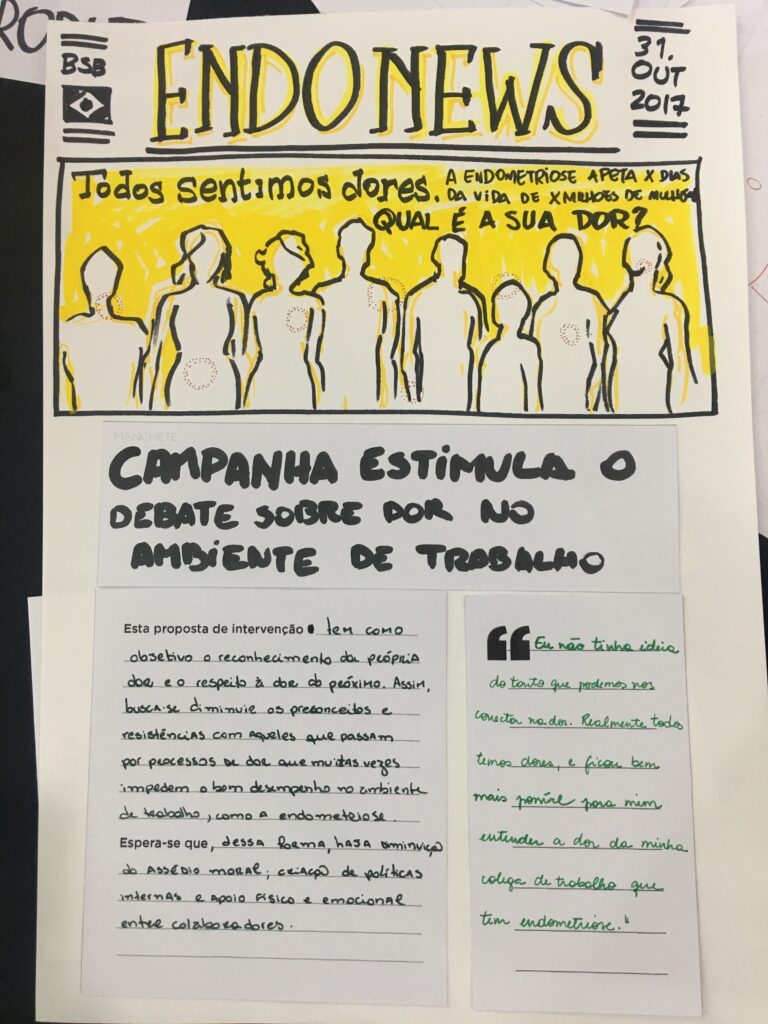 BSB
ENDO NEWS
31.
OUT
2017
Todos sentimos dores.
A ENDOMETRIOSE AFETA X DIAS
DA VIDA DE X MILHÕES DE MULHERES
QUAL É A SUA DOR?
MANCHETE
CAMPANHA ESTIMULA O
DEBATE SOBRE DOR NO
AMBIENTE DE TRABALHO
Esta proposta de intervenção tem como
objetivo o reconhecimento da própria
dor e o respeito à dor do próximo. Assim,
busca-se diminuir os preconceitos e
resistências com aqueles que passam
por processos de dor que muitas vezes
impedem o bom desempenho no ambiente
de trabalho, como a endometriose.
Espera-se que, dessa forma, haja diminuição
do assédio moral; criação de políticas
internas e apoio físico e emocional
entre colaboradores.
“Eu não tinha ideia
do tanto que podemos nos
conectar na dor. Realmente todos
temos dores, e ficou bem
mais possível para mim
entender a dor da minha
colega de trabalho que
tem endometriose."